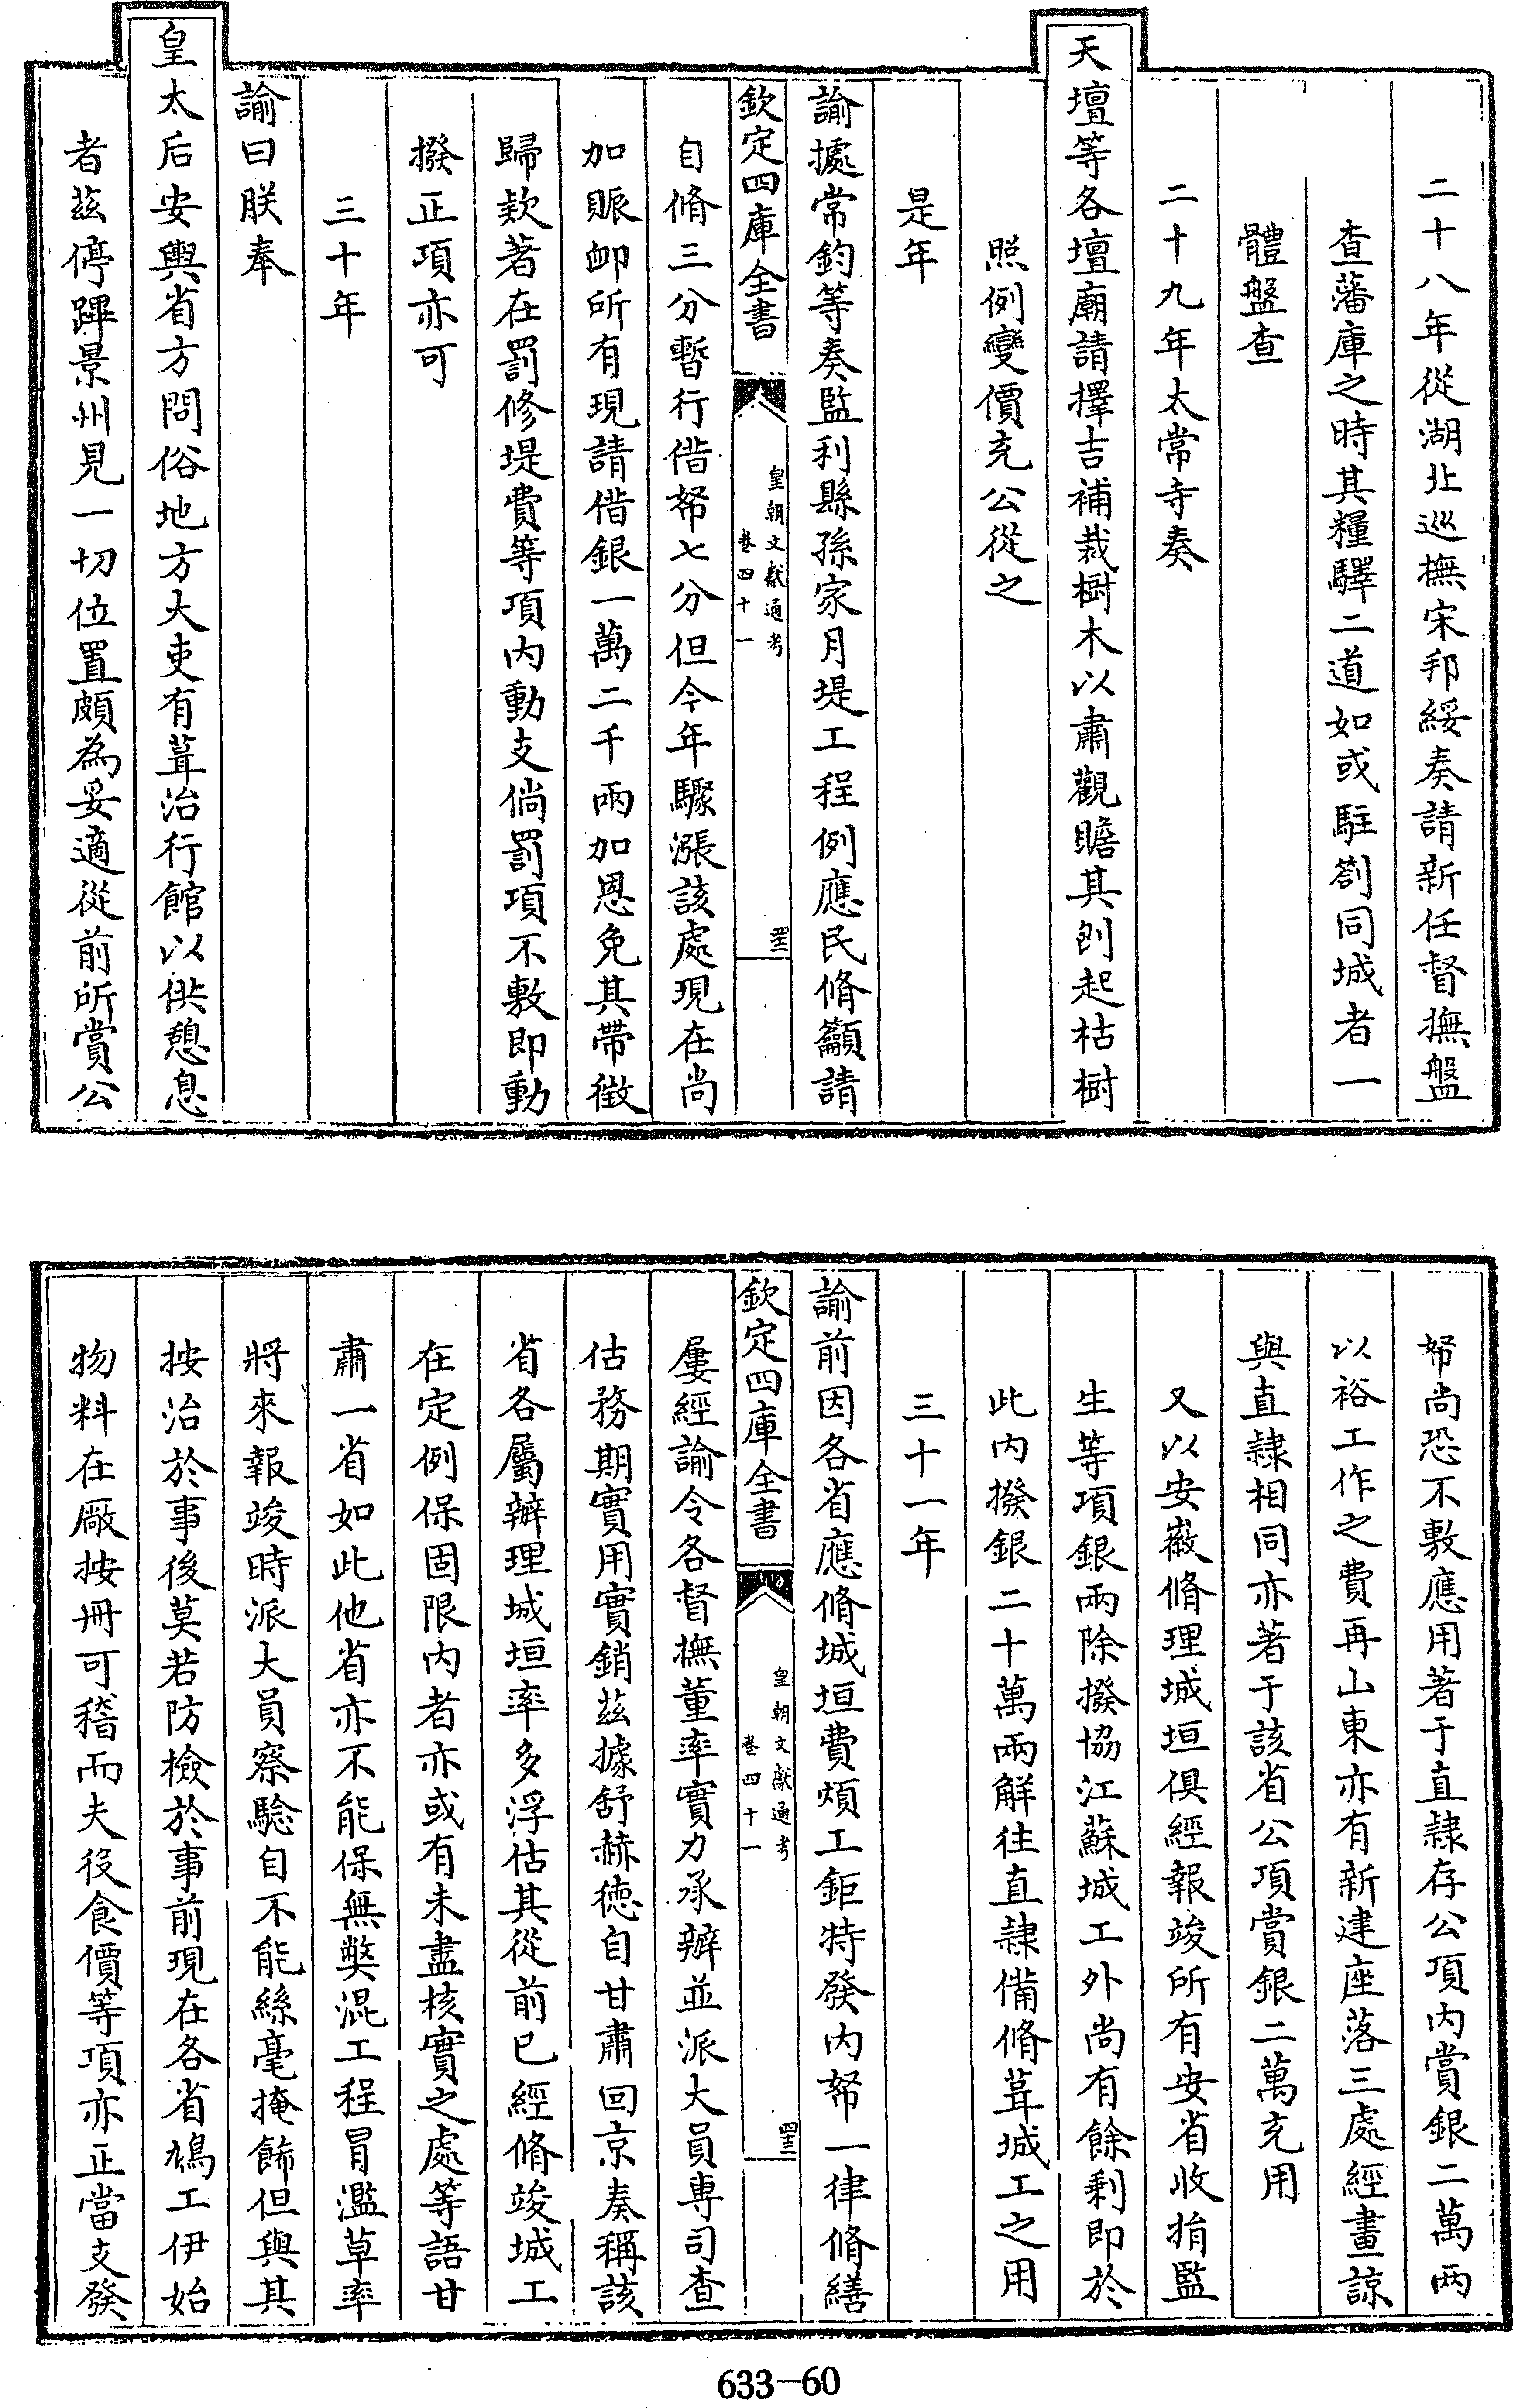 二十八年從湖北巡撫宋邦綏奏請新任督撫盤
查藩庫之時其糧驛二道如或駐劄同城者一
體盤查
二十九年太常寺奏
天壇等各壇廟請擇吉補栽樹木以肅觀瞻其刨起枯樹
照例變價充公從之
是年
諭據常鈞等奏監利縣孫家月堤工程例應民脩籲請
欽定四庫全書
皇朝文獻通考
卷四十一
四十三
自脩三分暫行借帑七分但今年驟漲該處現在尚
加賑卹所有現請借銀一萬二千兩加恩免其帶徵
歸款著在罰修堤費等項內動支倘罰項不敷即動
撥正項亦可
三十年
諭曰朕奉
皇太后安輿省方問俗地方大吏有葺治行館以供憩息
者茲停蹕景州見一切位置頗為妥適從前所賞公
帑尚恐不敷應用著于直隸存公項內賞銀二萬兩
以裕工作之費再山東亦有新建座落三處經畫諒
與直隸相同亦著于該省公項賞銀二萬充用
又以安徽脩理城垣俱經報竣所有安省收捐監
生等項銀兩除撥協江蘇城工外尚有餘剩即於
此內撥銀二十萬兩解往直隸備脩葺城工之用
三十一年
諭前因各省應脩城垣費煩工鉅特發內帑一律脩繕
欽定四庫全書
皇朝文獻通考
卷四十一
屢經諭令各督撫董率實力承辦並派大員專司查
估務期實用實銷茲據舒赫德自甘肅回京奏稱該
省各屬辦理城垣率多浮估其從前已經脩竣城工
在定例保固限內者亦或有未盡核實之處等語甘
肅一省如此他省亦不能保無弊混工程冒濫草率
將來報竣時派大員察驗自不能絲毫掩飾但與其
按治於事後莫若防檢於事前現在各省鳩工伊始
物料在廠按冊可稽而夫役食價等項亦正當支發
633-60